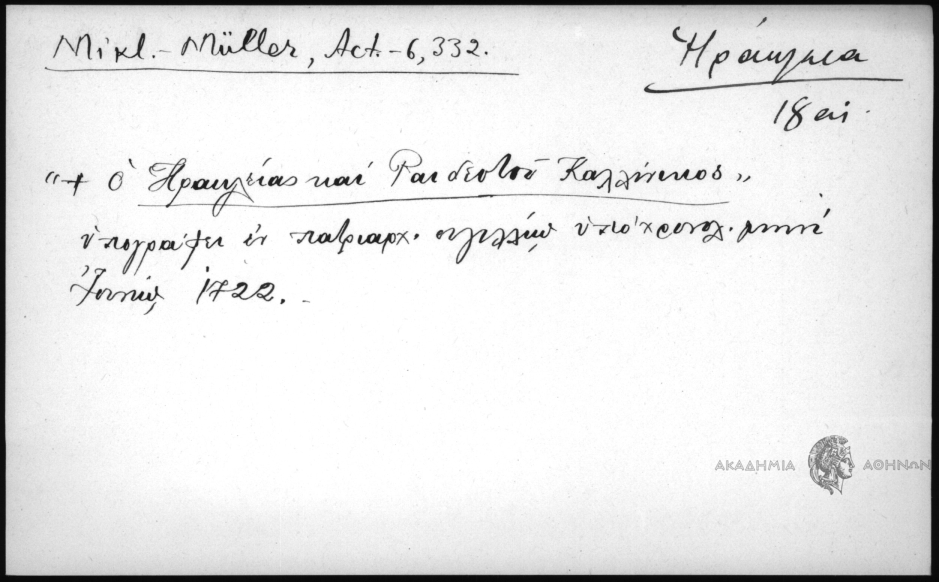 Mikl.-Müller, Act.-6,332.
Ἡράκλεια
18 αἰ.
“+ ὁ Ἡρακλείας καί Ραιδεστοῦ Καλλίνικος„
ὑπογράφει ἐν πατριαρχ. σιγιλλίῳ ὑπό χρονολ. μηνί
Ἰουνίῳ 1722.-
ΑΚΑΔΗΜΙΑ ΑΘΗΝΩΝ